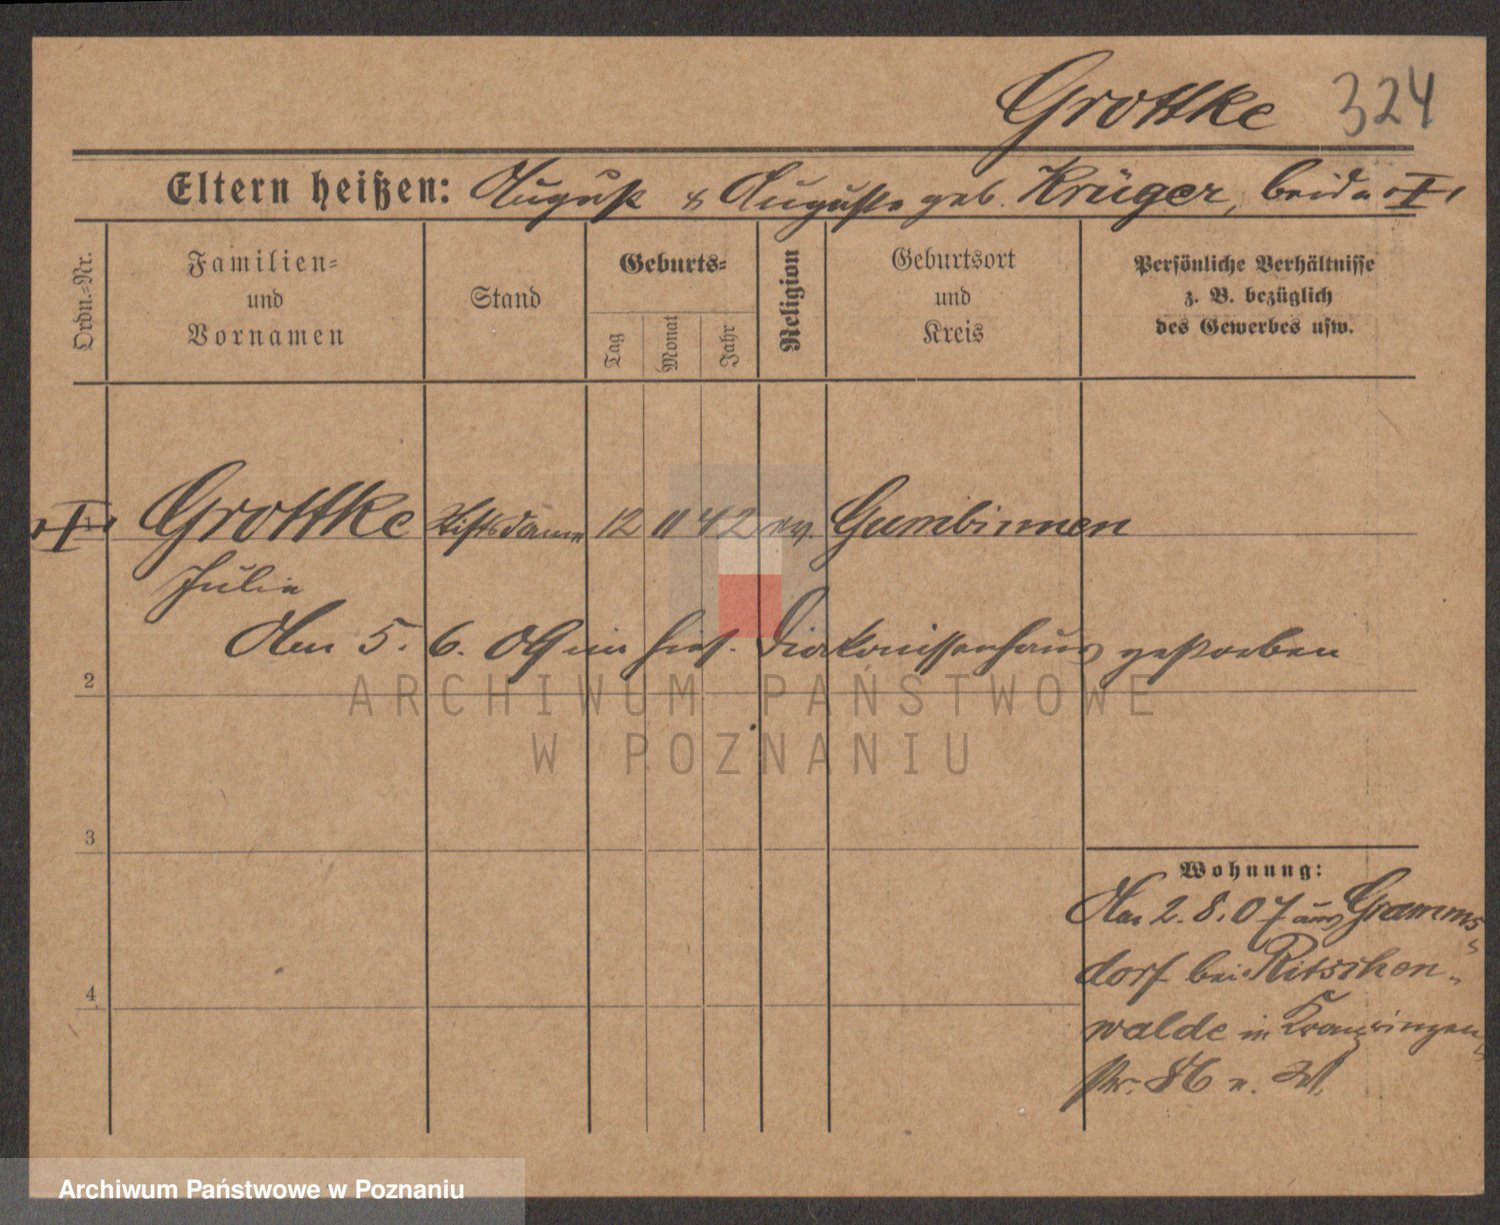 Grottke 324
Eltern heißen: August & Auguste geb. Krüger, beide †
Ordn.-Nr.
Familien-
und
Vornamen
Stand
Geburts-
Tag
Monat
Jahr
Religion
Geburtsort
und
Kreis
Persönliche Verhältnisse
z. B. bezüglich
des Gewerbes usw.
† Grottke Stiftsdame 12 11 42 ev. Gumbinnen
Julie
Am 5. 6. 09 im hies. Diakonissenhaus gestorben
2
ARCHIWUM PAŃSTWOWE
W POZNANIU
3
4
Wohnung:
Am 2. 8. 07 aus Gramms-
dorf bei Ritschen-
walde in
str. 86
Archiwum Państwowe w Poznaniu